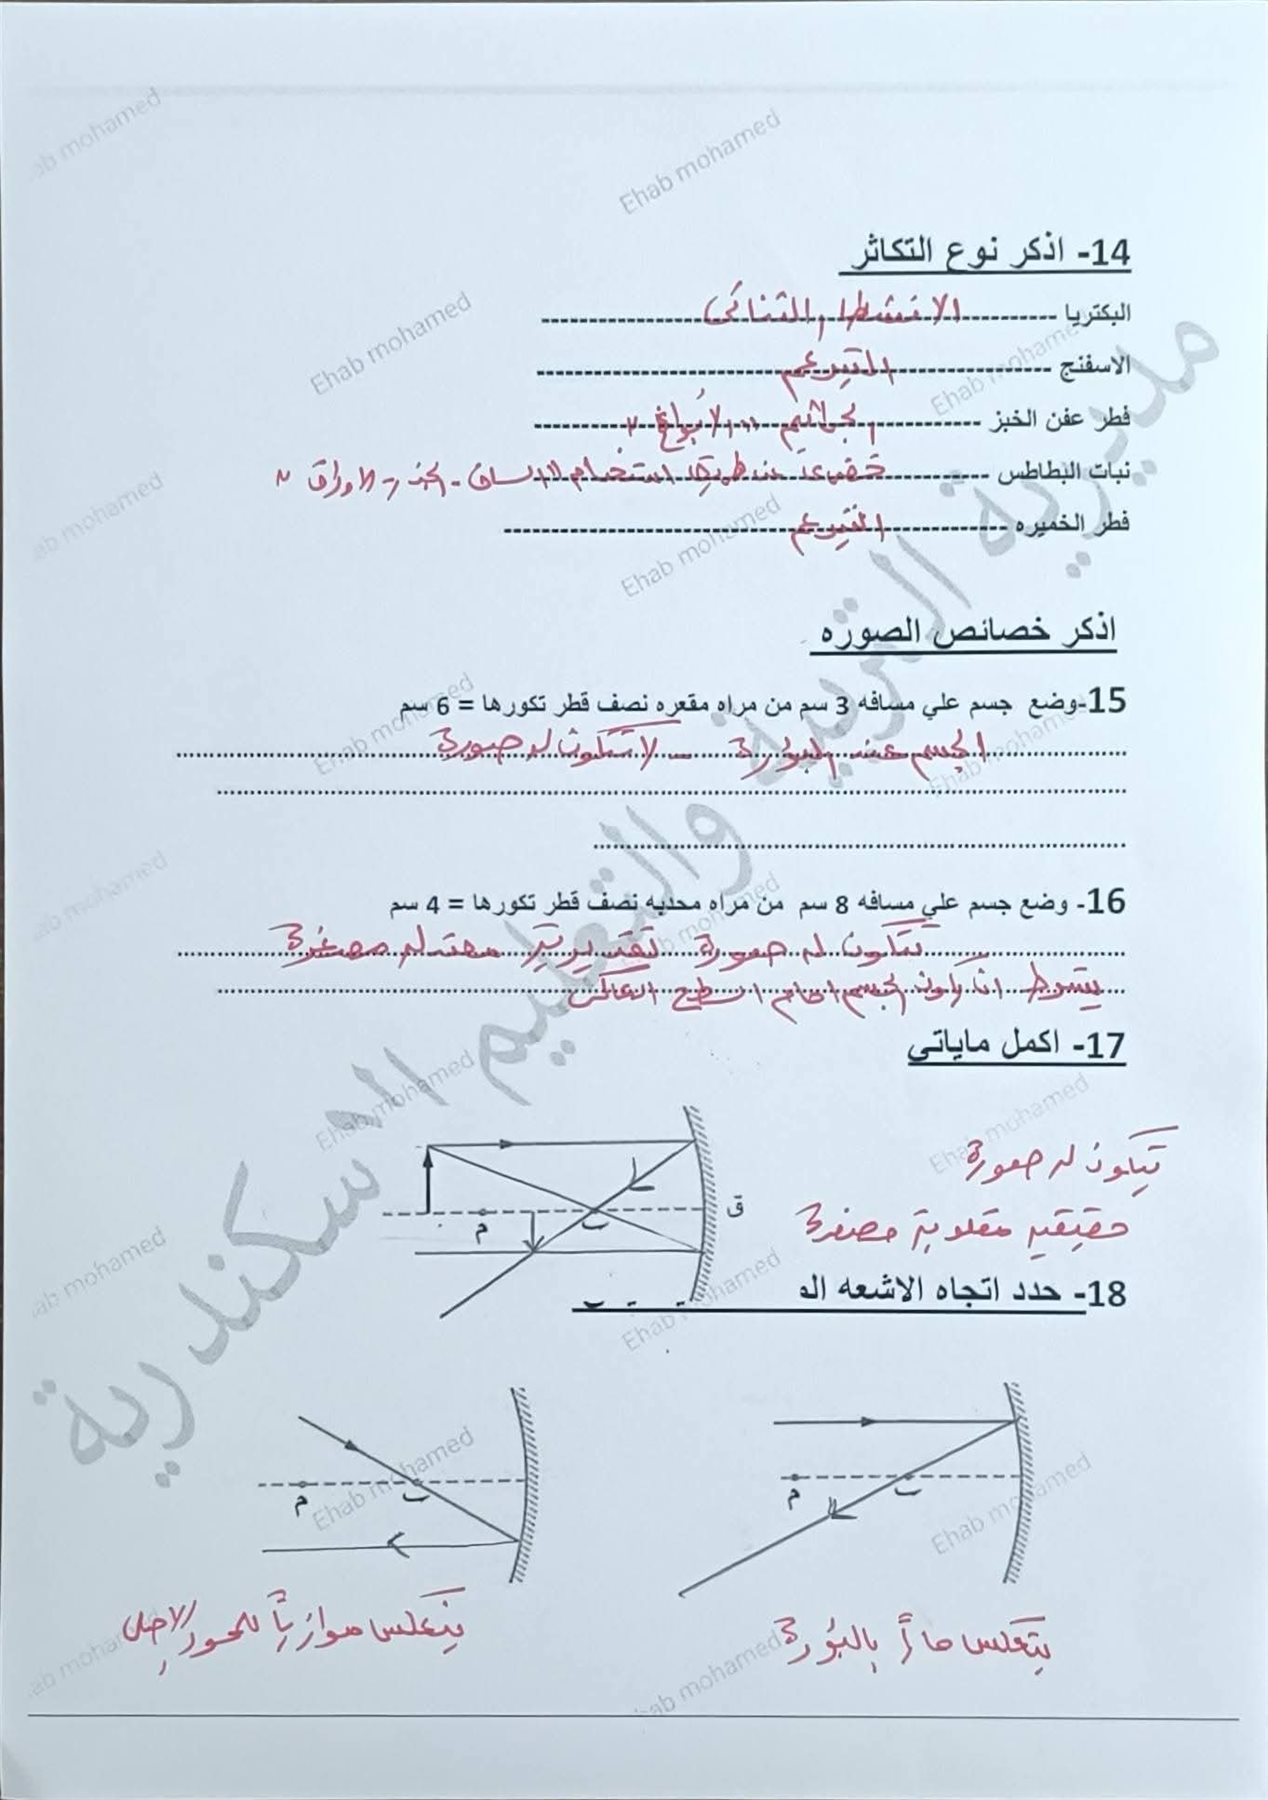 14- اذكر نوع التكاثر
البكتريا ---------- الانشطار الثنائى ----------
الاسفنج ---------- التبرعم ----------
فطر عفن الخبز ---------- الجراثيم " الأبواغ " ----------
نبات البطاطس ---------- خضرياً عن طريق استخدام الساق - الجذر - الاوراق "
فطر الخميره ---------- التبرعم ----------
اذكر خصائص الصوره
15-وضع جسم علي مسافه 3 سم من مراه مقعره نصف قطر تكورها = 6 سم
الجسم عند البؤرة - لا تتكون له صورة
16- وضع جسم علي مسافه 8 سم من مراه محدبه نصف قطر تكورها = 4 سم
تتكون له صورة تقديرية معتدله مصغرة
يشترط ان يكون الجسم امام السطح العاكس
17- اكمل ماياتي
تتكون له صورة
حقيقيه مقلوبة مصغرة
ق
ب
م
18- حدد اتجاه الاشعه الم
م ب
م ب
ينعكس ماراً بالبؤرة
ينعكس موازياً للمحور الاصلى
مديرية التربية والتعليم الاسكندرية
Ehab mohamed